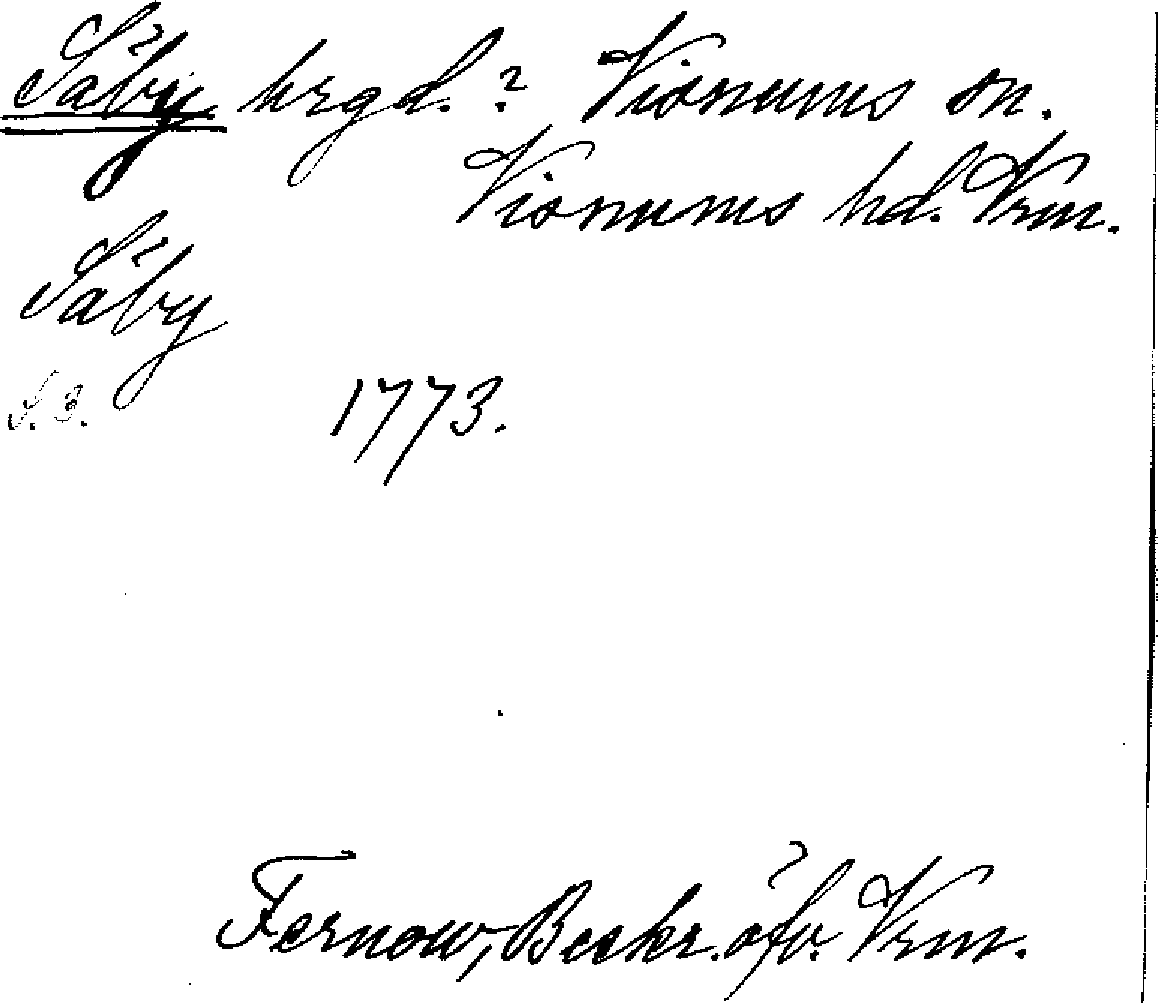 Säby hrgd. ? Visnums sn.
Visnums hd. Vrm.
Säby
S. 3. 1773.
Fernow, Beskr. öfv. Vrm.